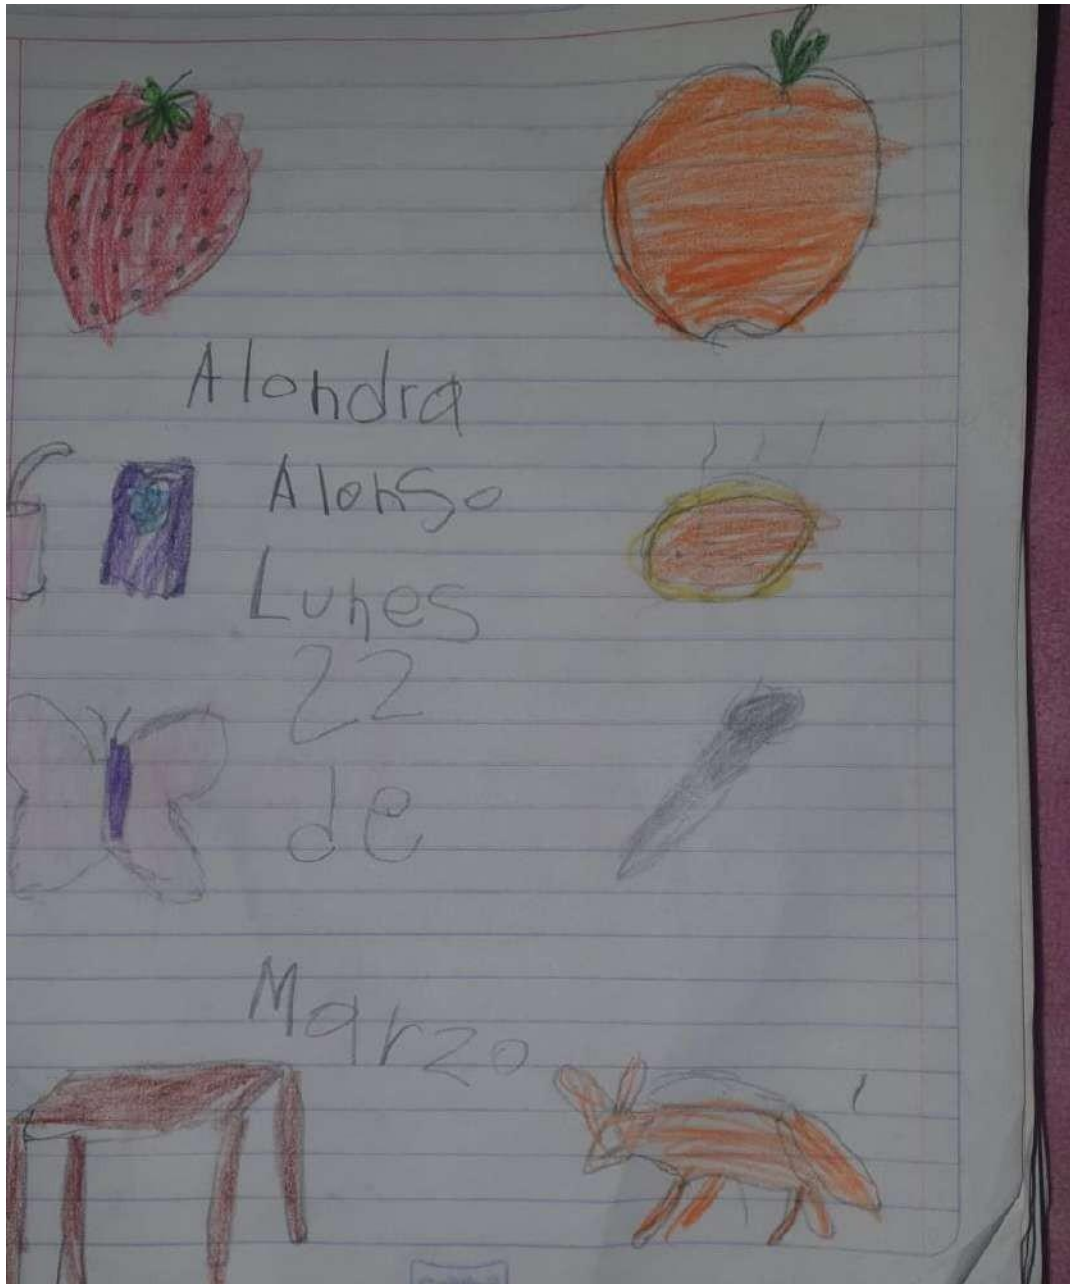 Alondra
Alonso
Lunes
22
de
Marzo